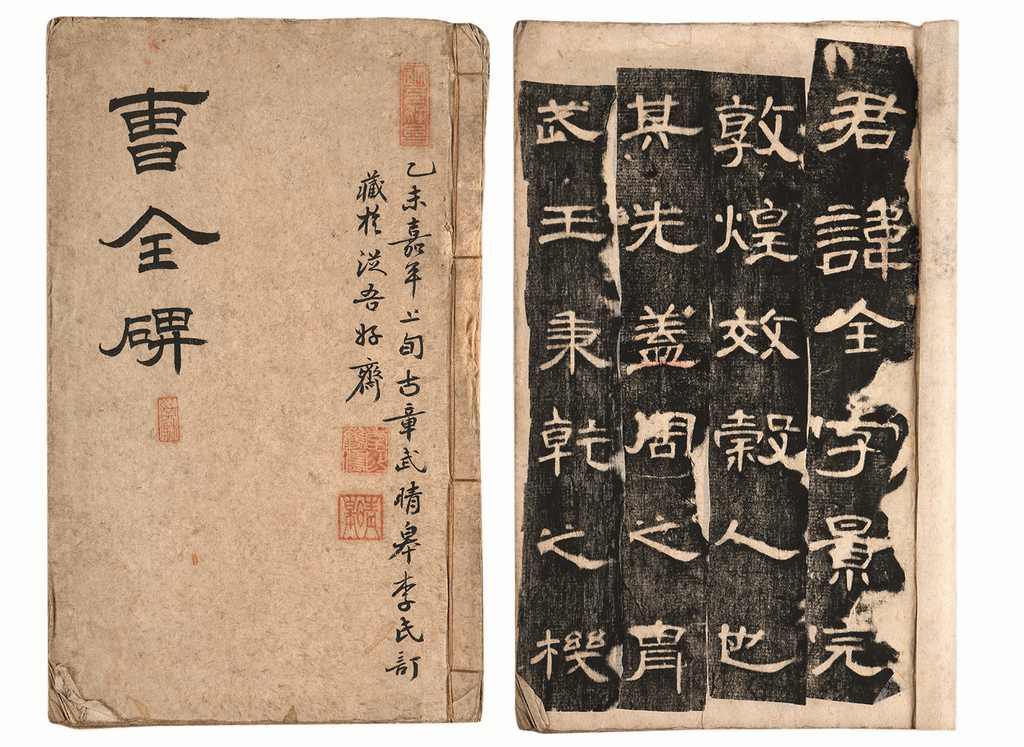 曺全碑
乙未嘉平上旬古章武晴皋李氏訂
藏於從吾好齋
君諱全字景完
敦煌效穀人也
其先蓋周之胄
武王秉乾之機